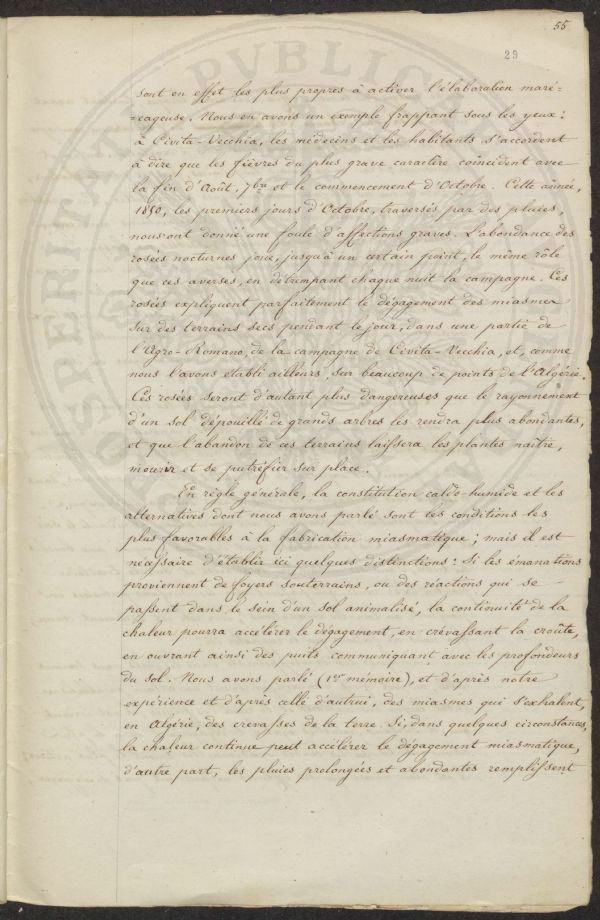 55
29
sont en effet les plus propres à activer l'élaboration maré=
=cageuse. Nous en avons un exemple frappant sous les yeux:
à Civita-Vecchia, les médecins et les habitants s'accordent
à dire que les fièvres du plus grave caractère coïncident avec
la fin d'Août, 7bre et le commencement d'Octobre. Cette année,
1850, les premiers jours d'Octobre, traversés par des pluies,
nous ont donné une foule d'affections graves. L'abondance des
rosées nocturnes joue, jusqu'à un certain point, le même rôle
que ces averses, en détrempant chaque nuit la campagne. Ces
rosées expliquent parfaitement le dégagement des miasmes
sur des terrains secs pendant le jour, dans une partie de
l'Agro-Romano, de la campagne de Civita-Vecchia, et, comme
nous l'avons établi ailleurs, sur beaucoup de points de l'Algérie.
Ces rosées seront d'autant plus dangereuses que le rayonnement
d'un sol dépouillé de grands arbres les rendra plus abondantes,
et que l'abandon de ces terrains laissera les plantes naître,
mourir et se putréfier sur place.
En règle générale, la constitution calido-humide et les
alternatives dont nous avons parlé sont les conditions les
plus favorables à la fabrication miasmatique; mais il est
nécessaire d'établir ici quelques distinctions: Si les émanations
proviennent de foyers souterrains, ou des réactions qui se
passent dans le sein d'un sol animalisé, la continuité de la
chaleur pourra accélérer le dégagement, en crévassant la croûte,
en ouvrant ainsi des puits communiquant avec les profondeurs
du sol. Nous avons parlé (1er mémoire), et d'après notre
expérience et d'après celle d'autrui, des miasmes qui s'exhalent,
en Algérie, des crevasses de la terre. Si, dans quelques circonstances,
la chaleur continue peut accélérer le dégagement miasmatique,
d'autre part, les pluies prolongées et abondantes remplissent